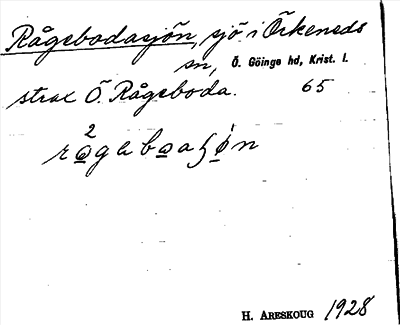 Rågebodasjön, sjö i Örkeneds
sn, Ö. Göinge hd, Krist. l.
strax Ö. Rågeboda. 65
H. Areskoug 1928